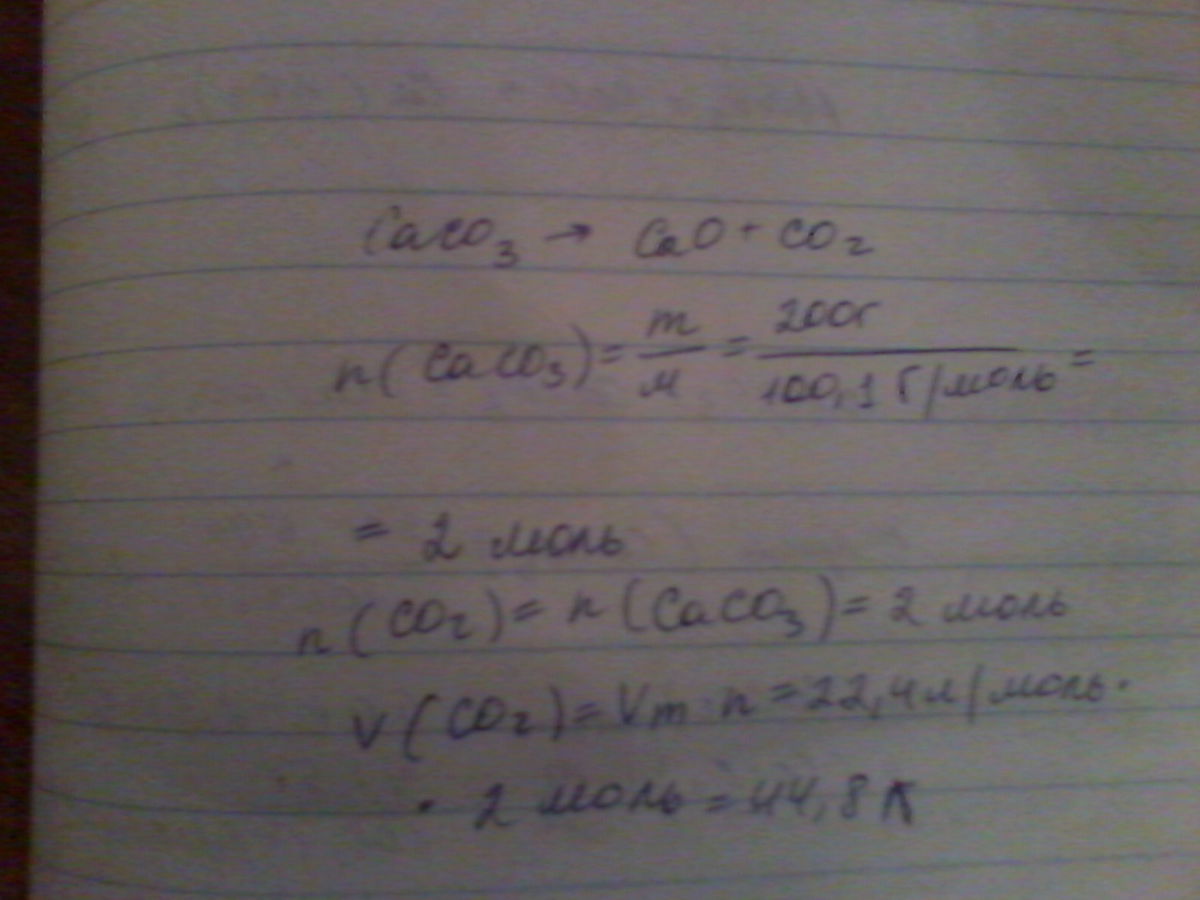 CaCO₃ → CaO + CO₂
n(CaCO₃) = m/м = 200г/100,1 г/моль =
= 2 моль
n(CO₂) = n(CaCO₃) = 2 моль
V(CO₂) = Vm · n = 22,4 л/моль ·
· 2 моль = 44,8 л